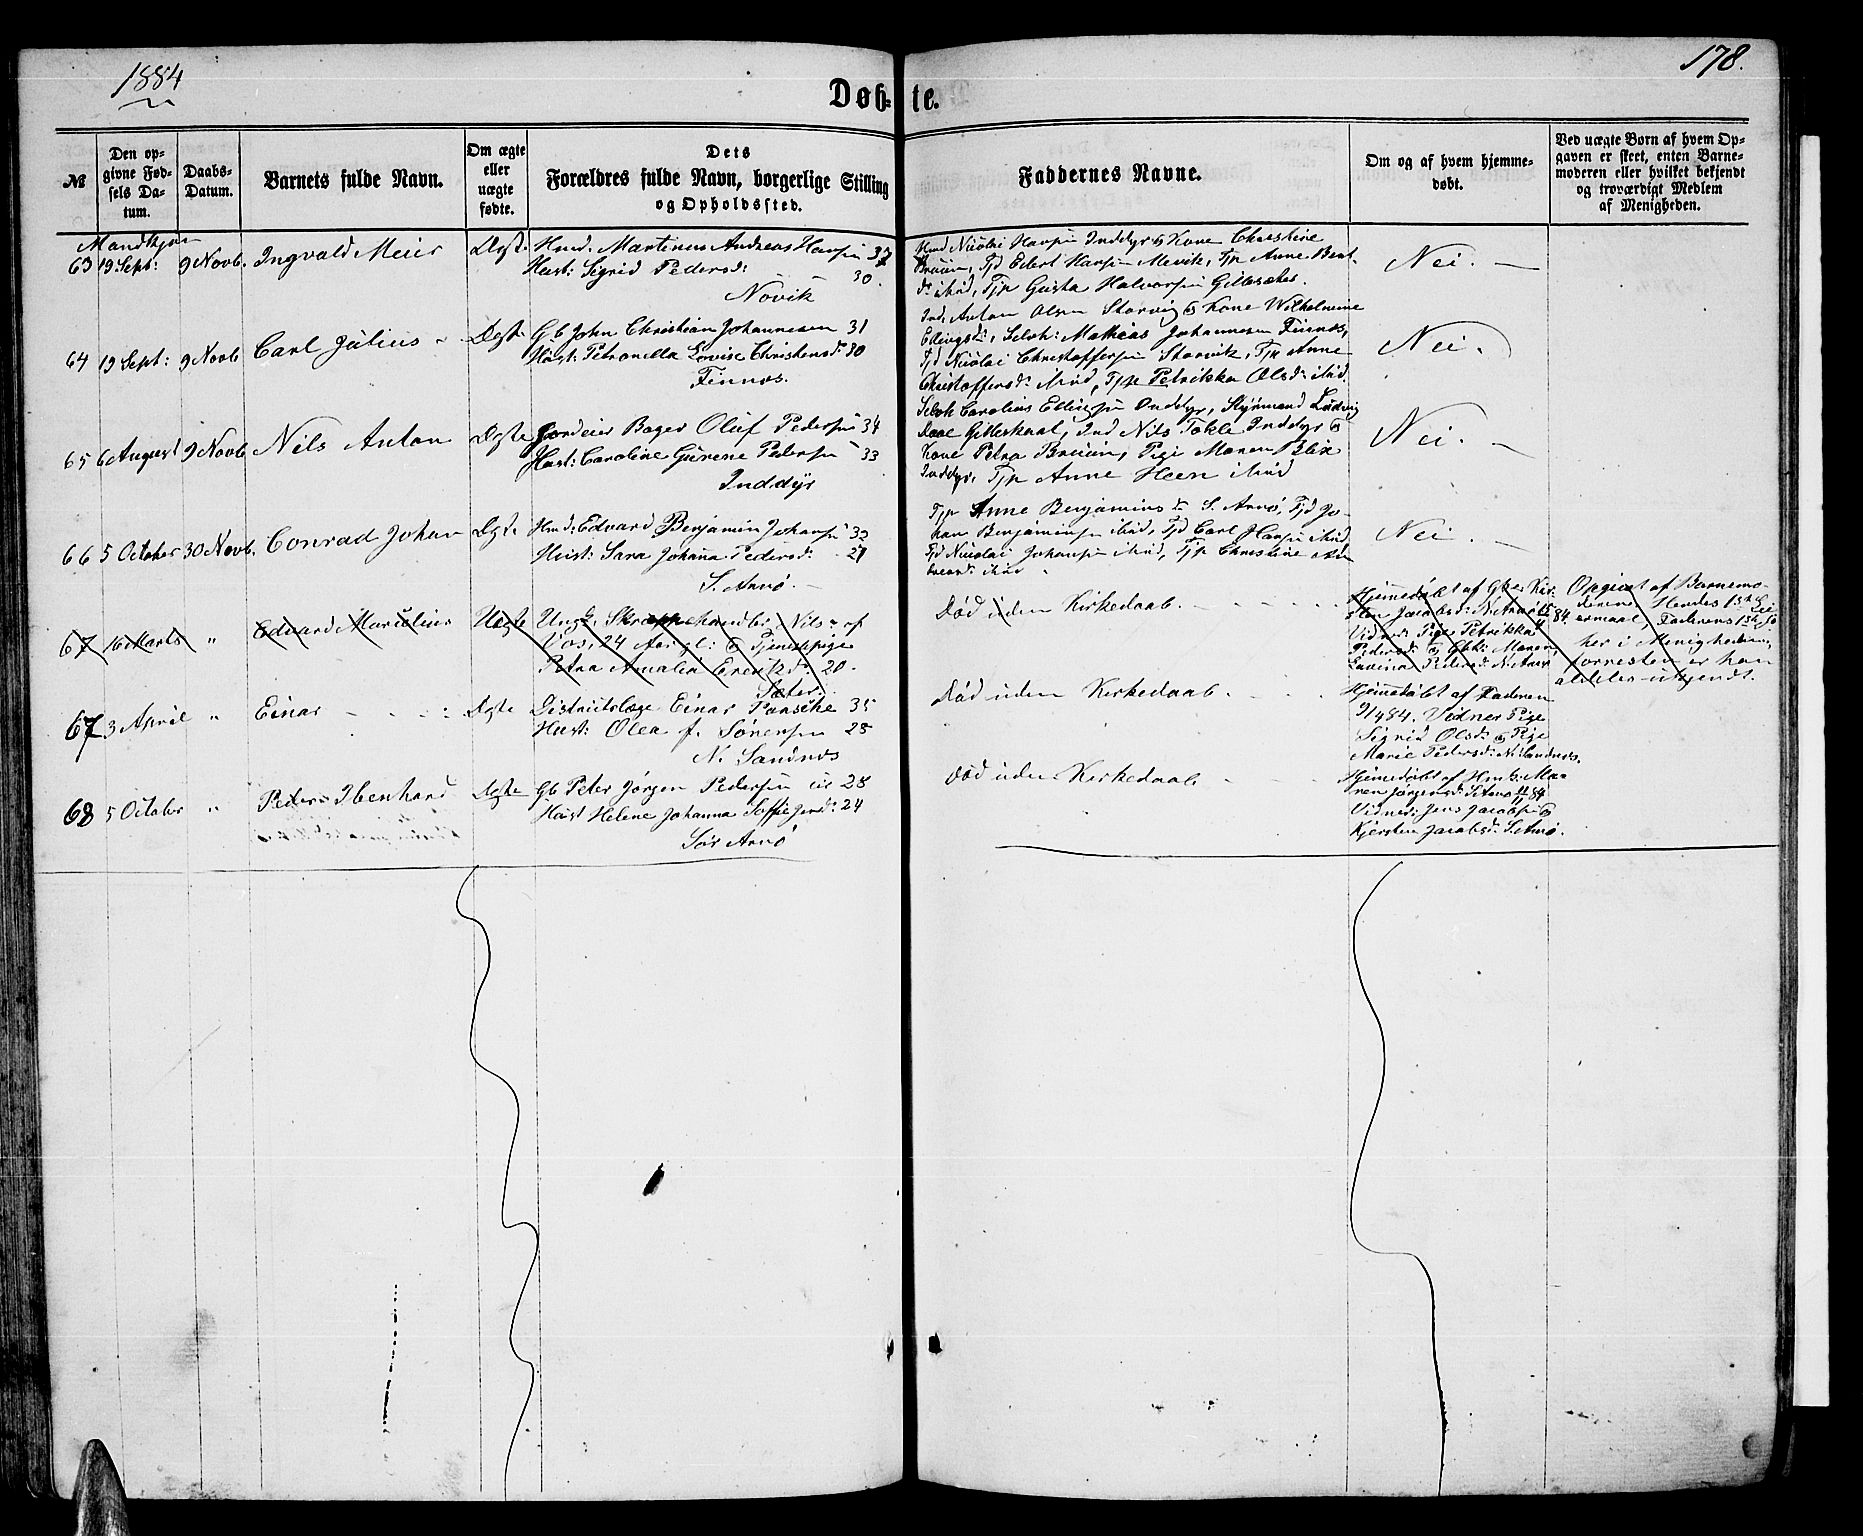 1884
178.
Døb-te.
№
Den op-
givne Fød-
sels Da-
tum.
Daabs-
Datum.
Barnets fulde Navn.
Om ægte
eller
uægte
fødte.
Dets
Forældres fulde Navn, borgerlige Stilling
og Opholdssted.
Faddernes Navne.
Om og af hvem hjemme-
døbt.
Ved uægte Børn af hvem Op-
gaven er skeet, enten Barne-
moderen eller hvilket bekjendt
og troværdigt Medlem
af Menigheden.
Mandkjøn
63 19 Sept: 9 Novb. Ingvald Meier Ægte
Hmd. Martinus Andreas Hansen 37
Hust: Sigrid Pedersd: 30.
Novik
Hmd Nicolai Hansen Inddyr & Kone Christine
Bruun, Tjd Edert Hansen Mevik, Tjp Anne Bent-
d: ibid, Tjp Gusta Halvorsen Gillesætes.
Nei.
64 19 Sept: 9 Novb Carl Julius Ægte
Gb John Christian Johannesen 31
Hust: Petronella Lovise Christensd: 30
Finnes.
Ind. Anton Olsen Storvig & Kone Wilhelmine
Ellingsd:, Selvh: Mathias Johannesen Finnes,
Tjd Nicolai Christoffersen Storvik, Tjp Anne
Christoffersd: ibid, Tjp Petrikka Olsd: ibid.
Nei.
65 6 August 9 Novb Nils Anton Ægte
Gaardeier Bager Oluf Pedersen 34
Hust: Caroline Gurene Pedersen 33
Inddyr
Selvh Carolius Ellingsen Inddyr, Styrmand Ludvig
Daae Gilleskaal, Ind Nils Tokle Inddyr &
Kone Petra Bruun, Pige Maren Blix
Inddyr, Tjp Anne Heen ibid
Nei.
66 5 October 30 Novb. Conrad Johan Ægte
Hmd: Edvard Benjamin Johansen 32
Hust: Sara Johana Pedersd: 21
S. Arnø.
Tjp Anne Benjamins d: S. Arnø, Tjd Jo-
han Benjaminsen ibid, Tjd Carl Hansen ibid.
Tjd Nicolai Johansen ibid, Tjp Christine
ibid
Nei.
67 16 Marts " Edvard Marculius Uægte
Ungk. Skræphandler Nils af
Vos, 24 Aar gl: & Tjenestepige
Petra Amalia Ereriksd: 20.
Sæter.
Død uden Kirkedaab.
Hjemmedøbt af Gbe. Kir-
sten Jacobsd: N. Arnø 84.
Vidner: Pige Petrikka
Pedersd: & Gbk: Maren
Lavina Pedersd: N. Arnø
Opgivet af Barnemo-
deren. Hendes 1ste Lei-
ermaal, Faderens 1ste
her i Menigheden,
forresten er han
aldeles ukjendt.
67 3 April " Einar Ægte
Distriktslæge Einar Paasche 35
Hust: Olea f. Sørensen 25
N. Sandnes
Død uden Kirkedaab.
Hjemmedøbt af Faderen
9/4 84. Vidner Pige
Sigrid Olsd: & Pige
Marie Pedersd: N. Sandnes.
68 5 October " Peder Ibenhard Ægte
Gb Peter Jørgen Pedersen 28
Hust Helene Johanna Soffie Jensd: 24
Sør Arnø
Død uden Kirkedaab
Hjemmedøbt af Hmk: Ma-
ren Jørgensd: S. Arnø 84
Vidner: Jens Jacobsen &
Kjersten Jacobsd: S. Arnø.